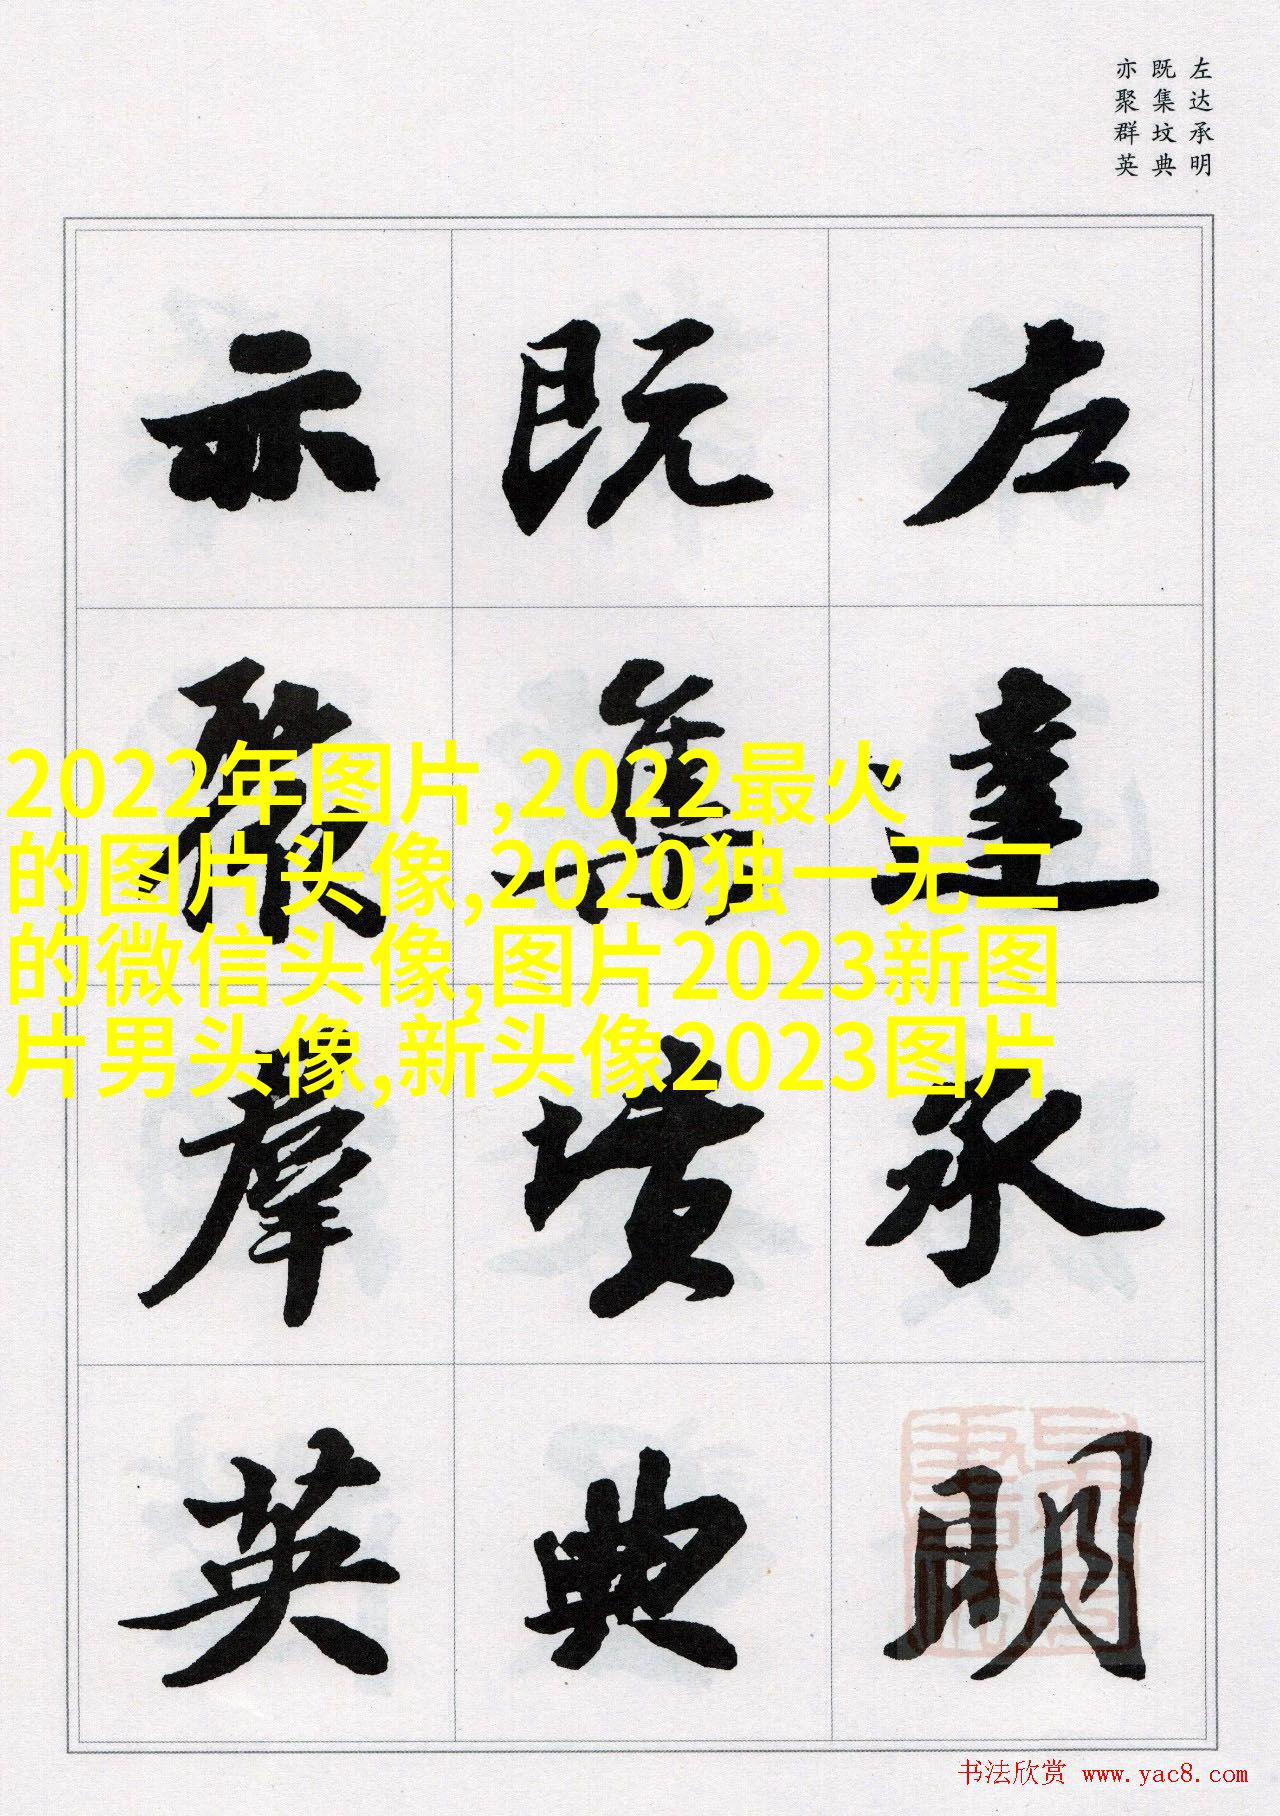 左达承明
既集坟典
亦聚群英
左達承明
既集墳典
亦聚羣英
2022年图片,2022最火
的图片头像,2020独一无二
的微信头像,图片2023新图
片男头像,新头像2023图片
书法欣赏 www.yac8.com